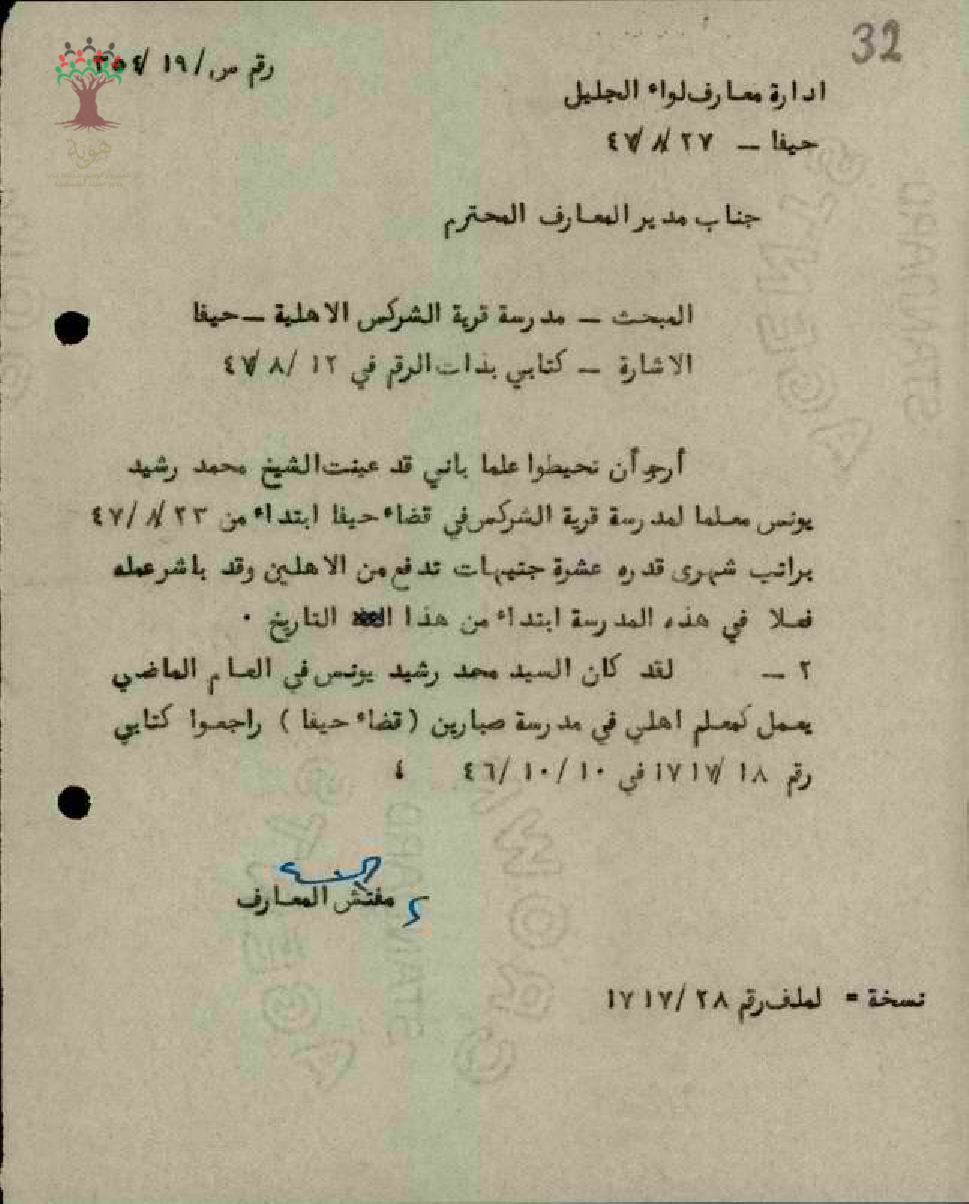 32
رقم س/١٩/٣٥٤
ادارة معارف لواء الجليل
حيفا – ٤٧/٨/٢٧
جناب مدير المعارف المحترم
المبحث – مدرسة قرية الشركس الاهلية – حيفا
الاشارة – كتابي بذات الرقم في ٤٧/٨/١٢
أرجو أن تحيطوا علما باني قد عينت الشيخ محمد رشيد
يونس معلما لمدرسة قرية الشركس في قضاء حيفا ابتداء من ٤٧/٨/٢٣
براتب شهرى قدره عشرة جنيهات تدفع من الاهلين وقد باشر عمله
فعلا في هذه المدرسة ابتداء من هذا التاريخ ٠
٢ – لقد كان السيد محمد رشيد يونس في العام الماضي
يعمل كمعلم اهلي في مدرسة صبارين (قضاء حيفا) راجعوا كتابي
رقم ١٧١٧/١٨ في ٤٦/١٠/١٠
مفتش المعارف
نسخة = لملف رقم ١٧١٧/٢٨
هوية